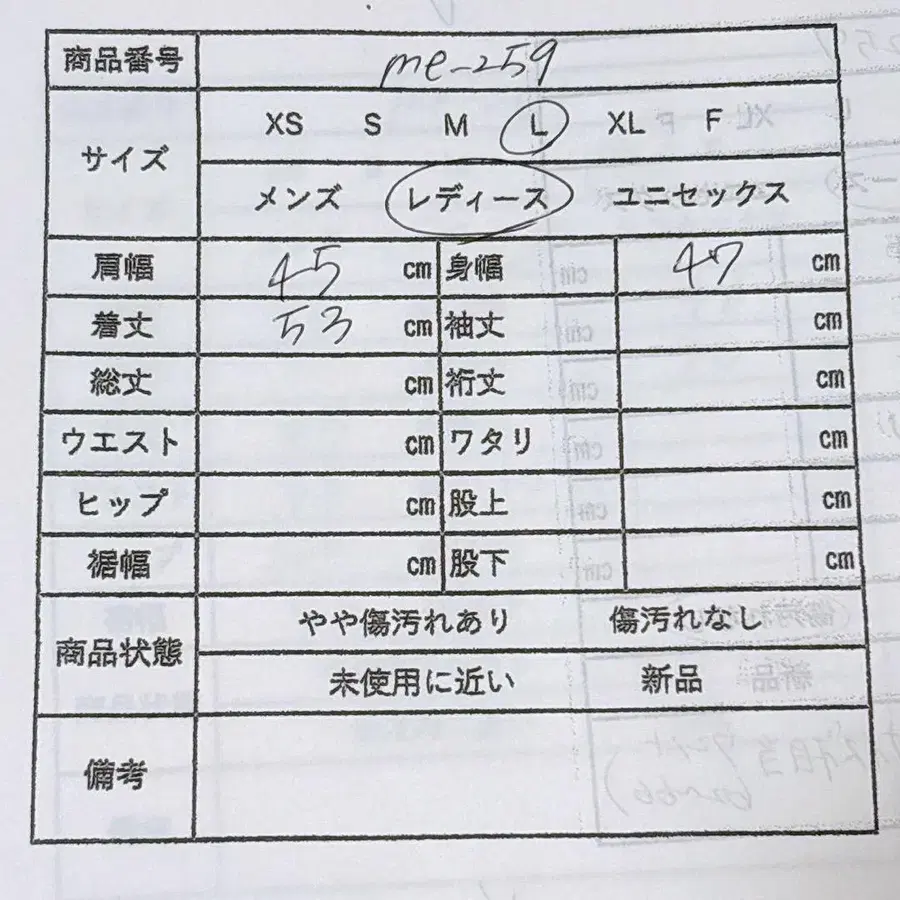 商品番号 me-259
サイズ XS S M L XL F
メンズ レディース ユニセックス
肩幅 45 cm 身幅 47 cm
着丈 53 cm 袖丈 cm
総丈 cm 裄丈 cm
ウエスト cm ワタリ cm
ヒップ cm 股上 cm
裾幅 cm 股下 cm
商品状態 やや傷汚れあり 傷汚れなし
未使用に近い 新品
備考